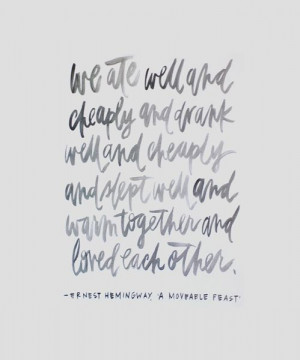 we ate well and
cheaply and drank
well and cheaply
and slept well and
warm together and
loved each other.
-ERNEST HEMINGWAY, 'A MOVEABLE FEAST'